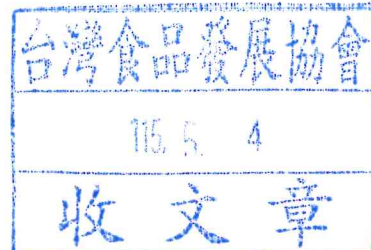 台灣食品發展協會
115. 5. 4
收文章